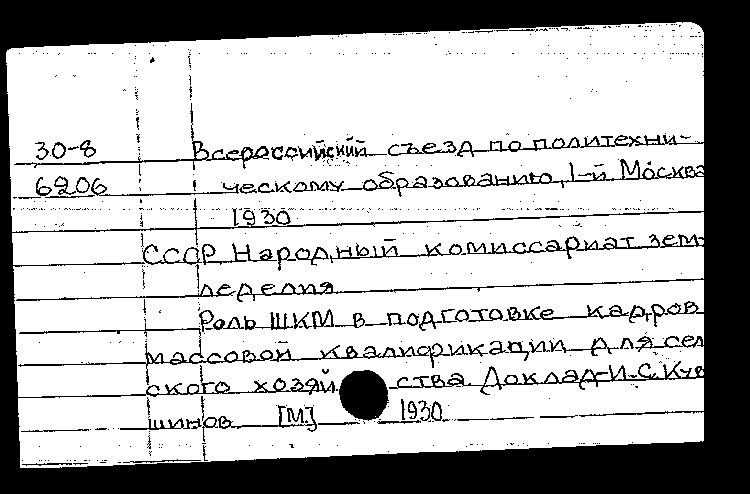 30-8 Всероссийский съезд по политехни-
6206 ческому образованию, 1-й. Москва
1930
СССР. Народный комиссариат зем-
леделия
Роль ШКМ в подготовке кадров
массовой квалификации для сел
ского хозяй ства. Доклад И.С. Кув
шинов. [М.] 1930